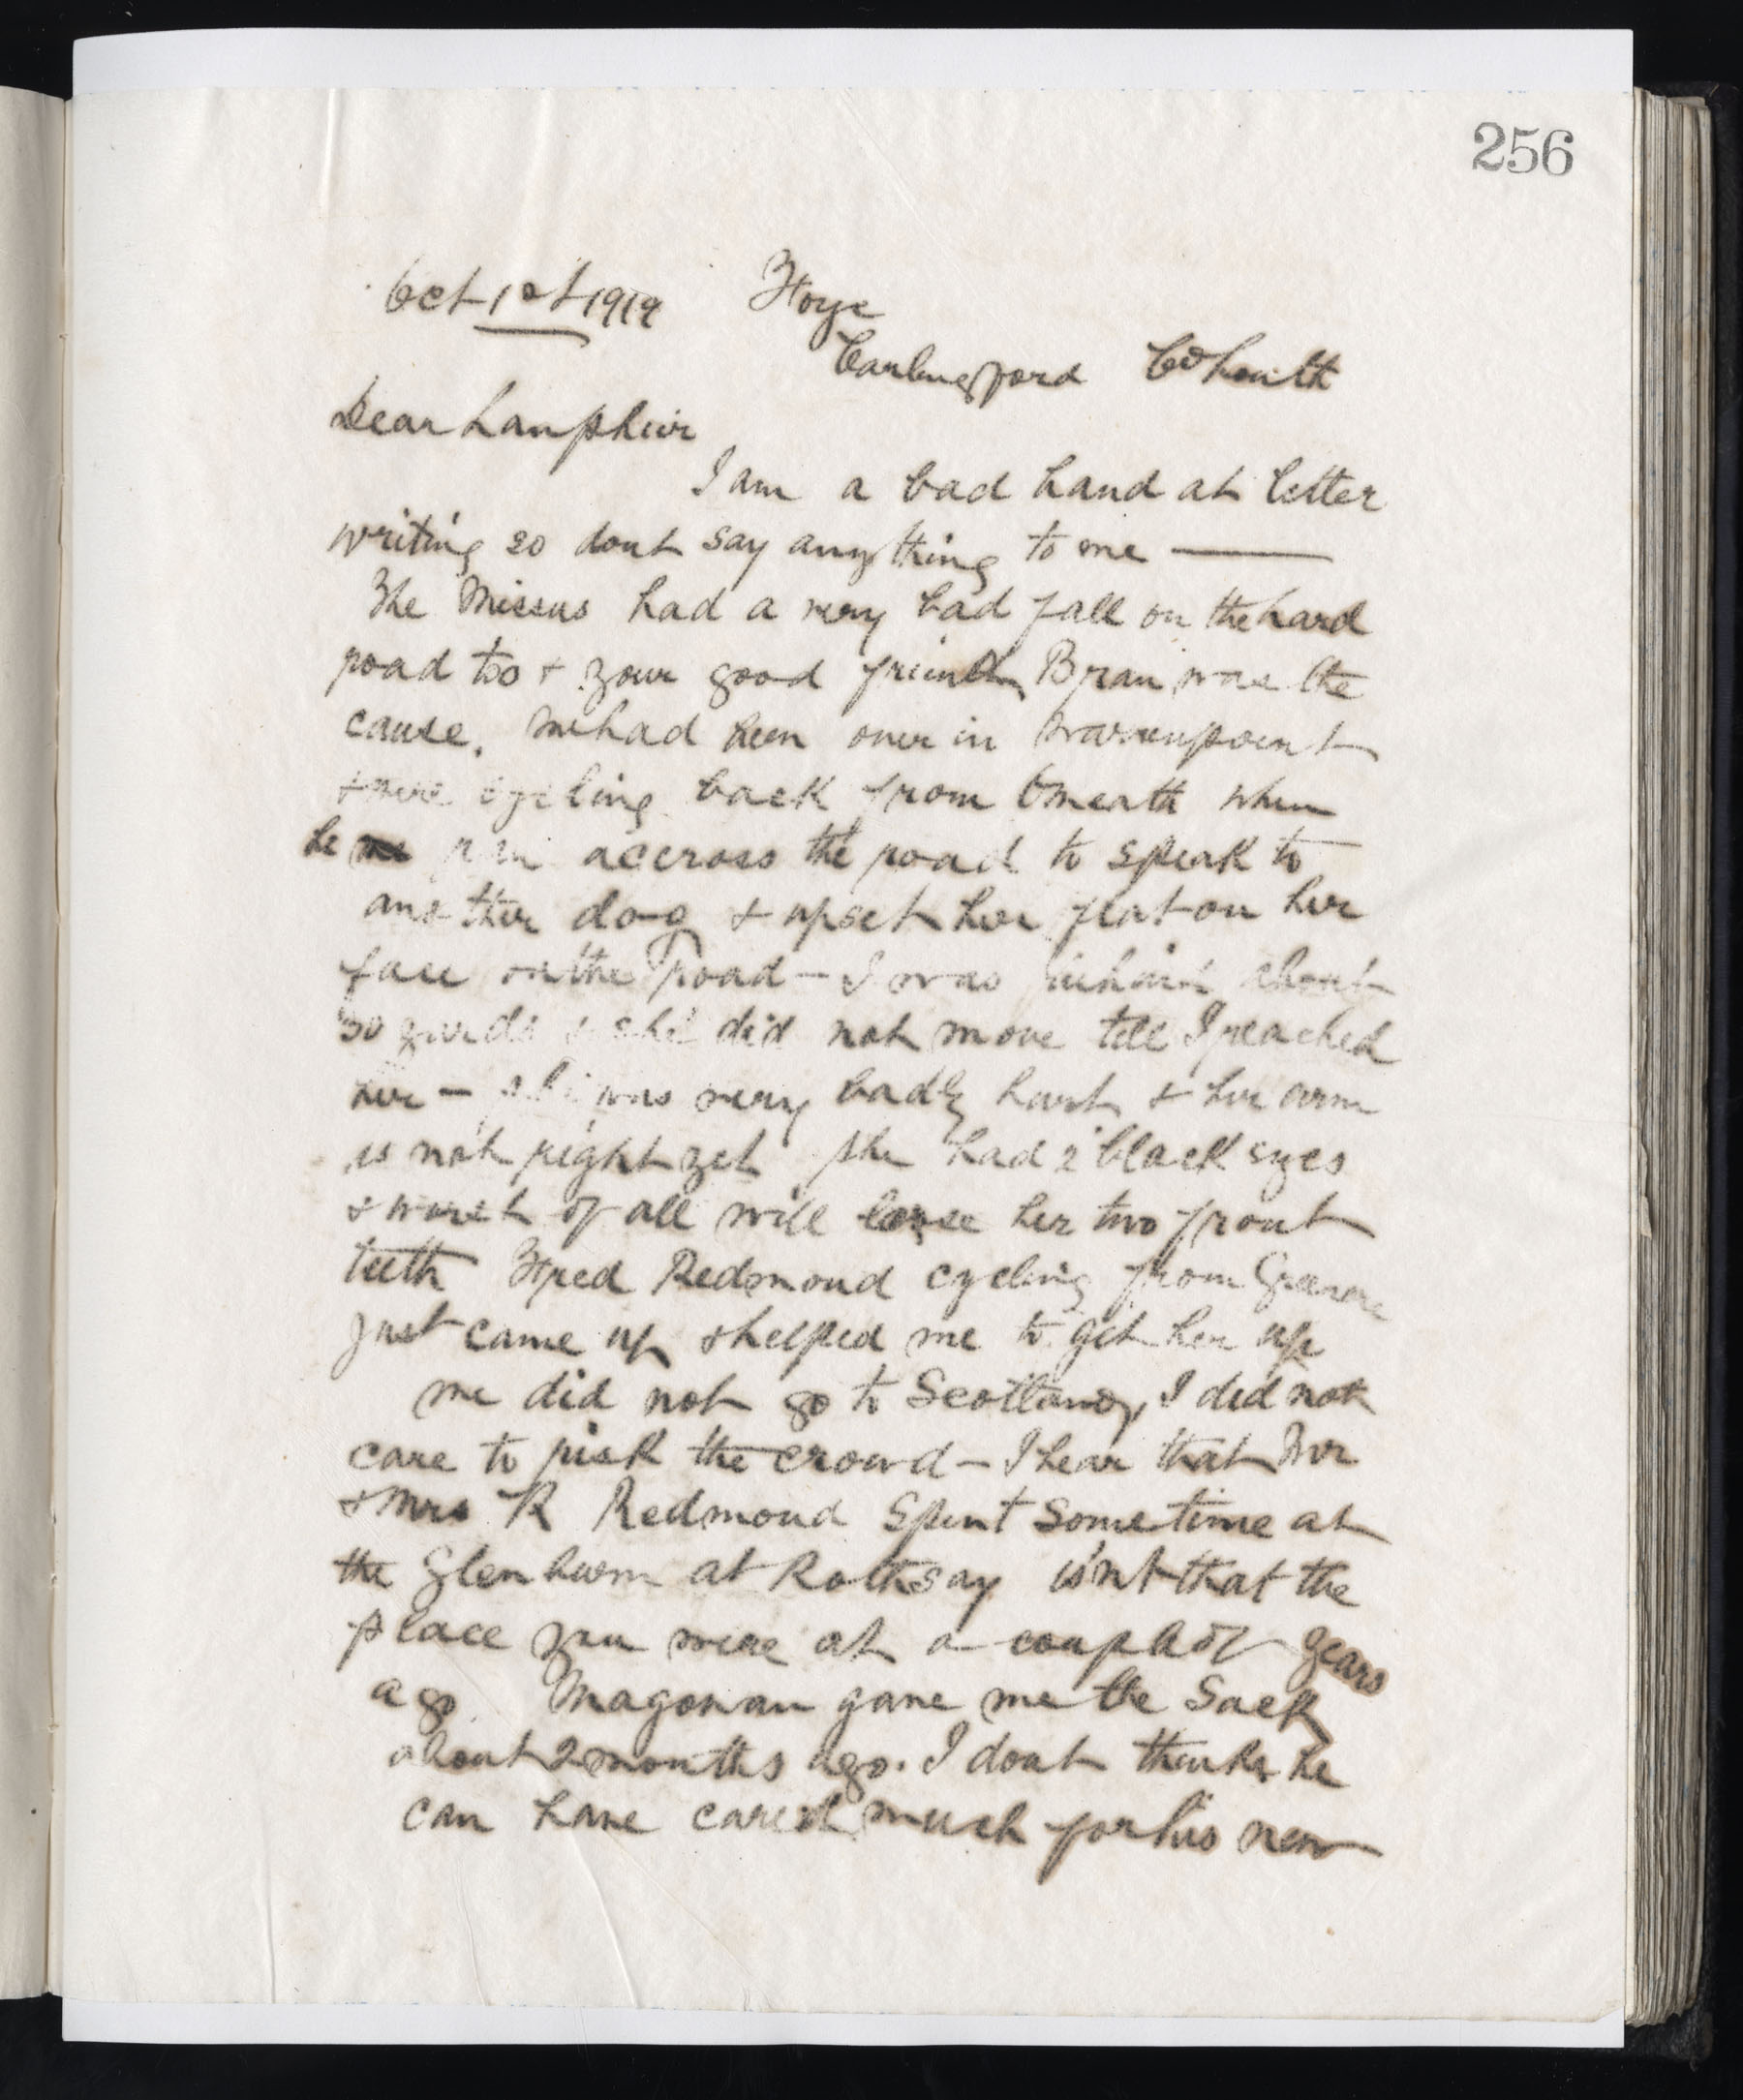 256
Oct 1st 1919 Foye
Carlingford Co Louth
Dear Lanphier
I am a bad hand at letter
writing so dont say anything to me —
The Missus had a very bad fall on the hard
road too & your good friend Bran was the
cause. We had been over in Warrenpoint
& were cycling back from Omeath when
he ran accross the road to speak to
another dog & upset her flat on her
face on the road — I was behind about
50 yards & she did not move till I reached
her — she was very badly hurt & her arm
is not right yet she had 2 black eyes
& worst of all will loose her two front
teeth Fred Redmond cycling from Greenore
just came up & helped me to get her up
we did not go to Scotland, I did not
care to risk the crowd — I hear that Mr
& Mrs R Redmond spent some time at
the Glenburn at Rothsay isn't that the
place you were at a couple of years
ago. Magowan gave me the Sack
about 2 months ago. I dont think he
can have cared much for his new